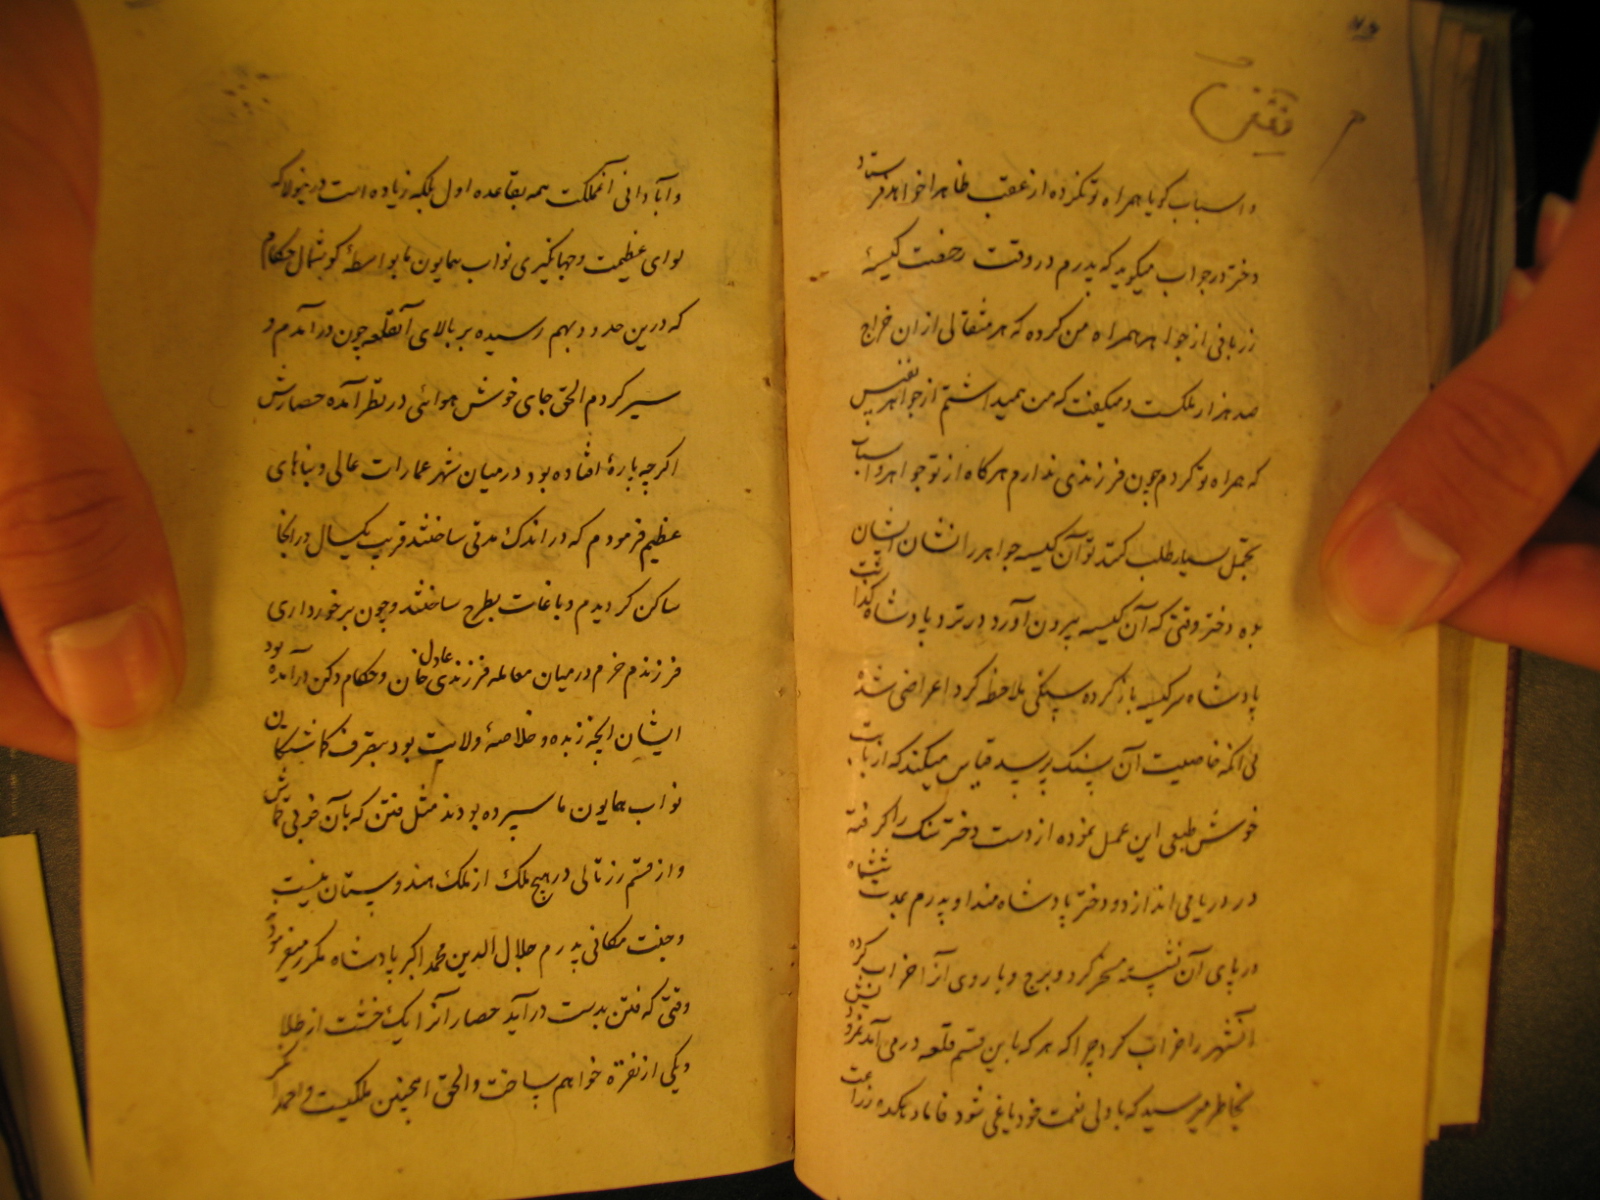 و اسباب گویا همراه تو نکرده از عقب ظاهرا خواهد فرستاد
دختر در جواب میگوید که پدرم در وقت رخصت کیسهٔ
زربافی از جواهر همراه من کرده که هر مثقالی از ان خراج
صد هزار ملکست و میگفت که من همید اشتم از جواهر نفیس
که همراه تو کردم چون فرزندی ندارم هرگاه از تو جواهر و اسباب
تجمل بسیار طلب کنند تو آن کیسه جواهر را نشان ایشان
بده دختر وقتی که آن کیسه بیرون آورد در نزد پادشاه
پادشاه سر کیسه باز کرده سنگی ملاحظه کرد اعراضی شده
بی آنکه خاصیت آن سنک پرسید قیاس میکند که از بابت
خوش طبعی این عمل نموده از دست دختر سنک را گرفته
در دریا می اندازد و دختر پادشاه پدرم بمدت
در پای آن نشسته مسخر کرد و برج و باروی آنرا خراب کرده
آنشهر را خراب کرد چرا که هر که با این قسم قلعه در می آمد
بخاطر میرسید که با ولی نعمت خود یاغی شود زراعت
و آبادانی آنمملکت همه بقاعده اول بلکه زیاده است درینولا که
لوای عظیمت و جهانگیری نواب همایون ما بواسطهٔ گوشمال حکام
که درین حدود بهم رسیده بر بالای آنقلعه چون در آمدم و
سیر کردم الحق جای خوش هوائی در نظر آمده حصارش
اکرچه پارهٔ افتاده بود در میان شهر عمارات عالی و بناهای
عظیم فرمودم که در اندک مدتی ساختند قریب یکسال در انجا
ساکن کردیدم و باغات بطرح ساختند و چون برخورداری
فرزندم خرم در میان معامله فرزندی عادل خان و حکام دکن در آمده بود
ایشان انچه زبده و خلاصهٔ ولایت بود بتصرف کماشتکان
نواب همایون ما سپرده بودند مثل فتن که بآن خوبی قماش
و از قسم زرتالی در هیچ ملک از ملک هندوستان نیست
و جنت مکانی پدرم جلال الدین محمد اکبر پادشاه مکرر میفرمود
وقتی که فتن بدست در آید حصار آنرا یک خشت از طلا
و یکی از نقره خواهم ساخت والحق اینچنین ملکیست و احمد نکر